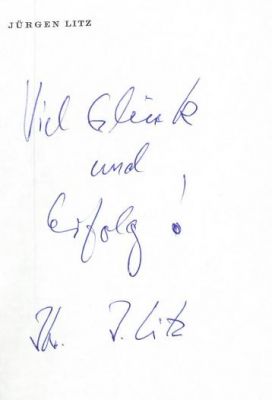 JÜRGEN LITZ
Viel Glück
und
Erfolg!
Ihr J. Litz